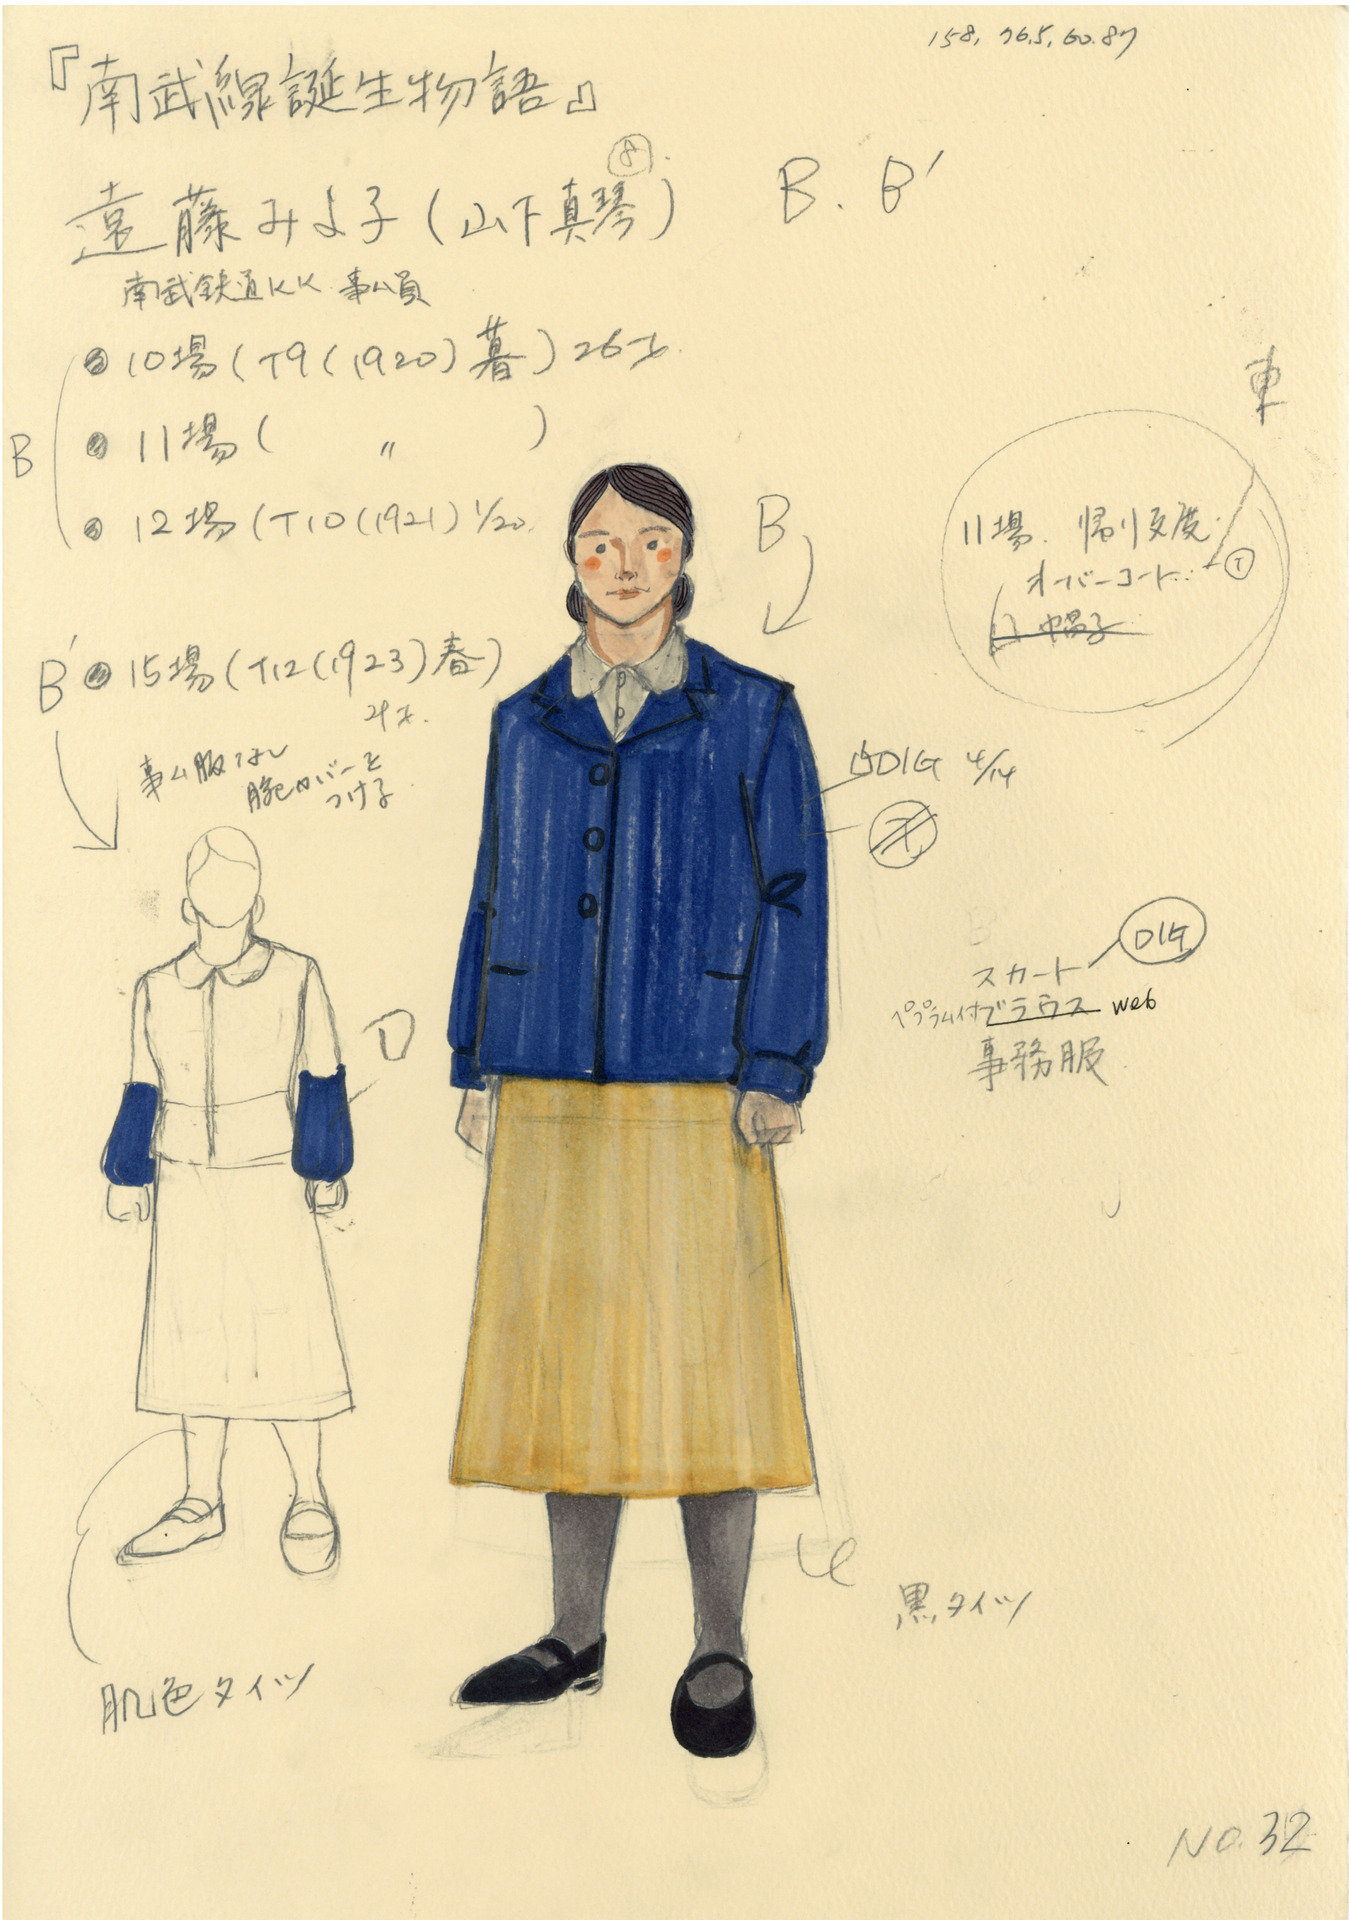 158, 76.5, 60.87
『南武線誕生物語』
8
遠藤みよ子(山下真琴)
B. B'
南武鉄道KK 事ム員
10場(T9(1920)暮)26才
B
11場( 〃 )
12場(T10(1921)1/20.
東
11場. 帰り支度
オーバーコート
T
B
B'
15場(T12(1923)春)
才.
事ム服なし
腕カバーを
つける
DIG 4/14
D
スカート DIG
ペプラム付ブラウス web
事務服
黒タイツ
肌色タイツ
NO.32